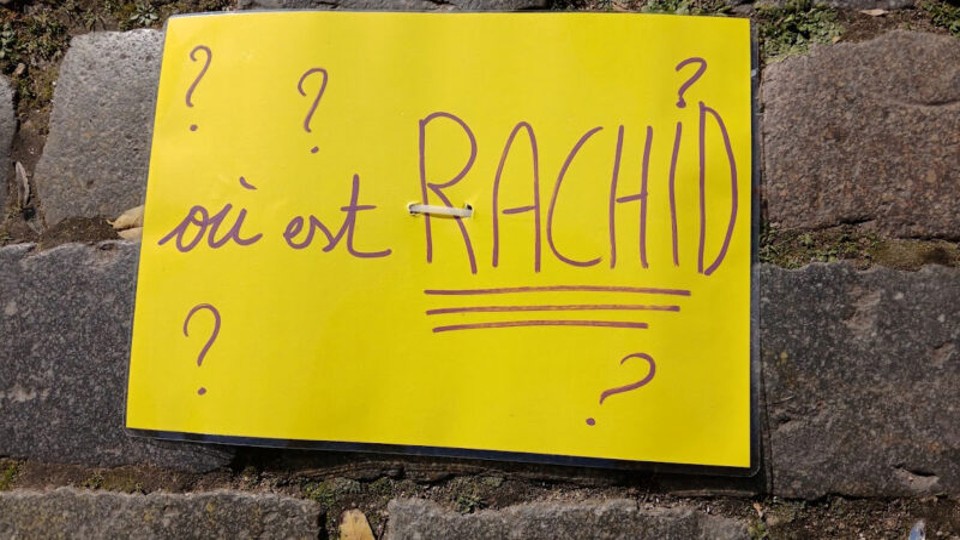 ? ? ?
où est RACHID
? ?